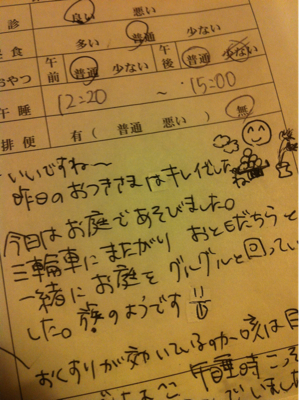 診 良い 悪い
食 多い 普通 少ない
おやつ 午前 普通 少ない 午後 普通 少ない
午睡 12:20 ～ 15:00
排便 有( 普通 悪い ) 無
いいですね〜
昨日のおつきさまはキレイでしたね
今日はお庭であそびました。
三輪車にまたがり おともだちらと
一緒にお庭をグルグルと回ってい
した。 のようです
おくすりが効いているのか咳は
午睡時こそ